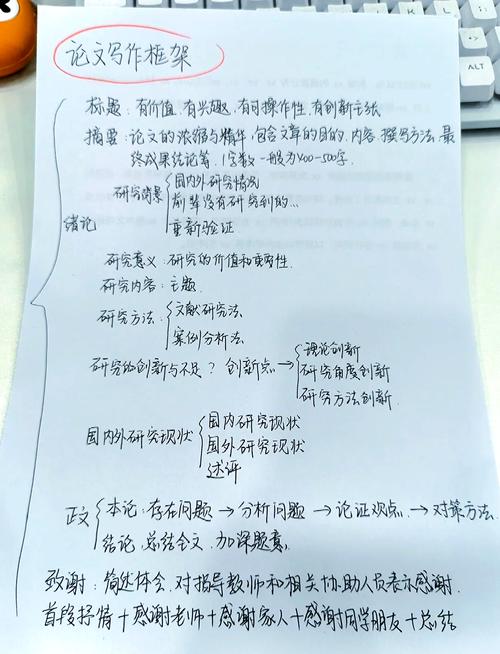 论文写作框架
标题：有价值，有兴趣，有可操作性，有创新主张
摘要：论文的浓缩与精华，包含文章的目的，内容，撰写方法，最
终成果结论等，字数一般为400-500字。
绪论
研究背景
国内外研究情况
前辈没有研究到的...
重新验证
研究意义：研究的价值和重要性.
研究内容：主题.
研究方法：
文献研究法
案例分析法
研究的创新与不足？创新点→
理论创新
研究角度创新
研究方法创新.
国内外研究现状
国内研究现状
国外研究现状
述评
正文
本论：存在问题→分析问题→论证观点.→对策方法.
结论，总结全文，加深题意，
致谢：简述体会，对指导教师和相关协助人员表示感谢.
首段抒情+感谢老师+感谢家人+感谢同学朋友+总结
ALT